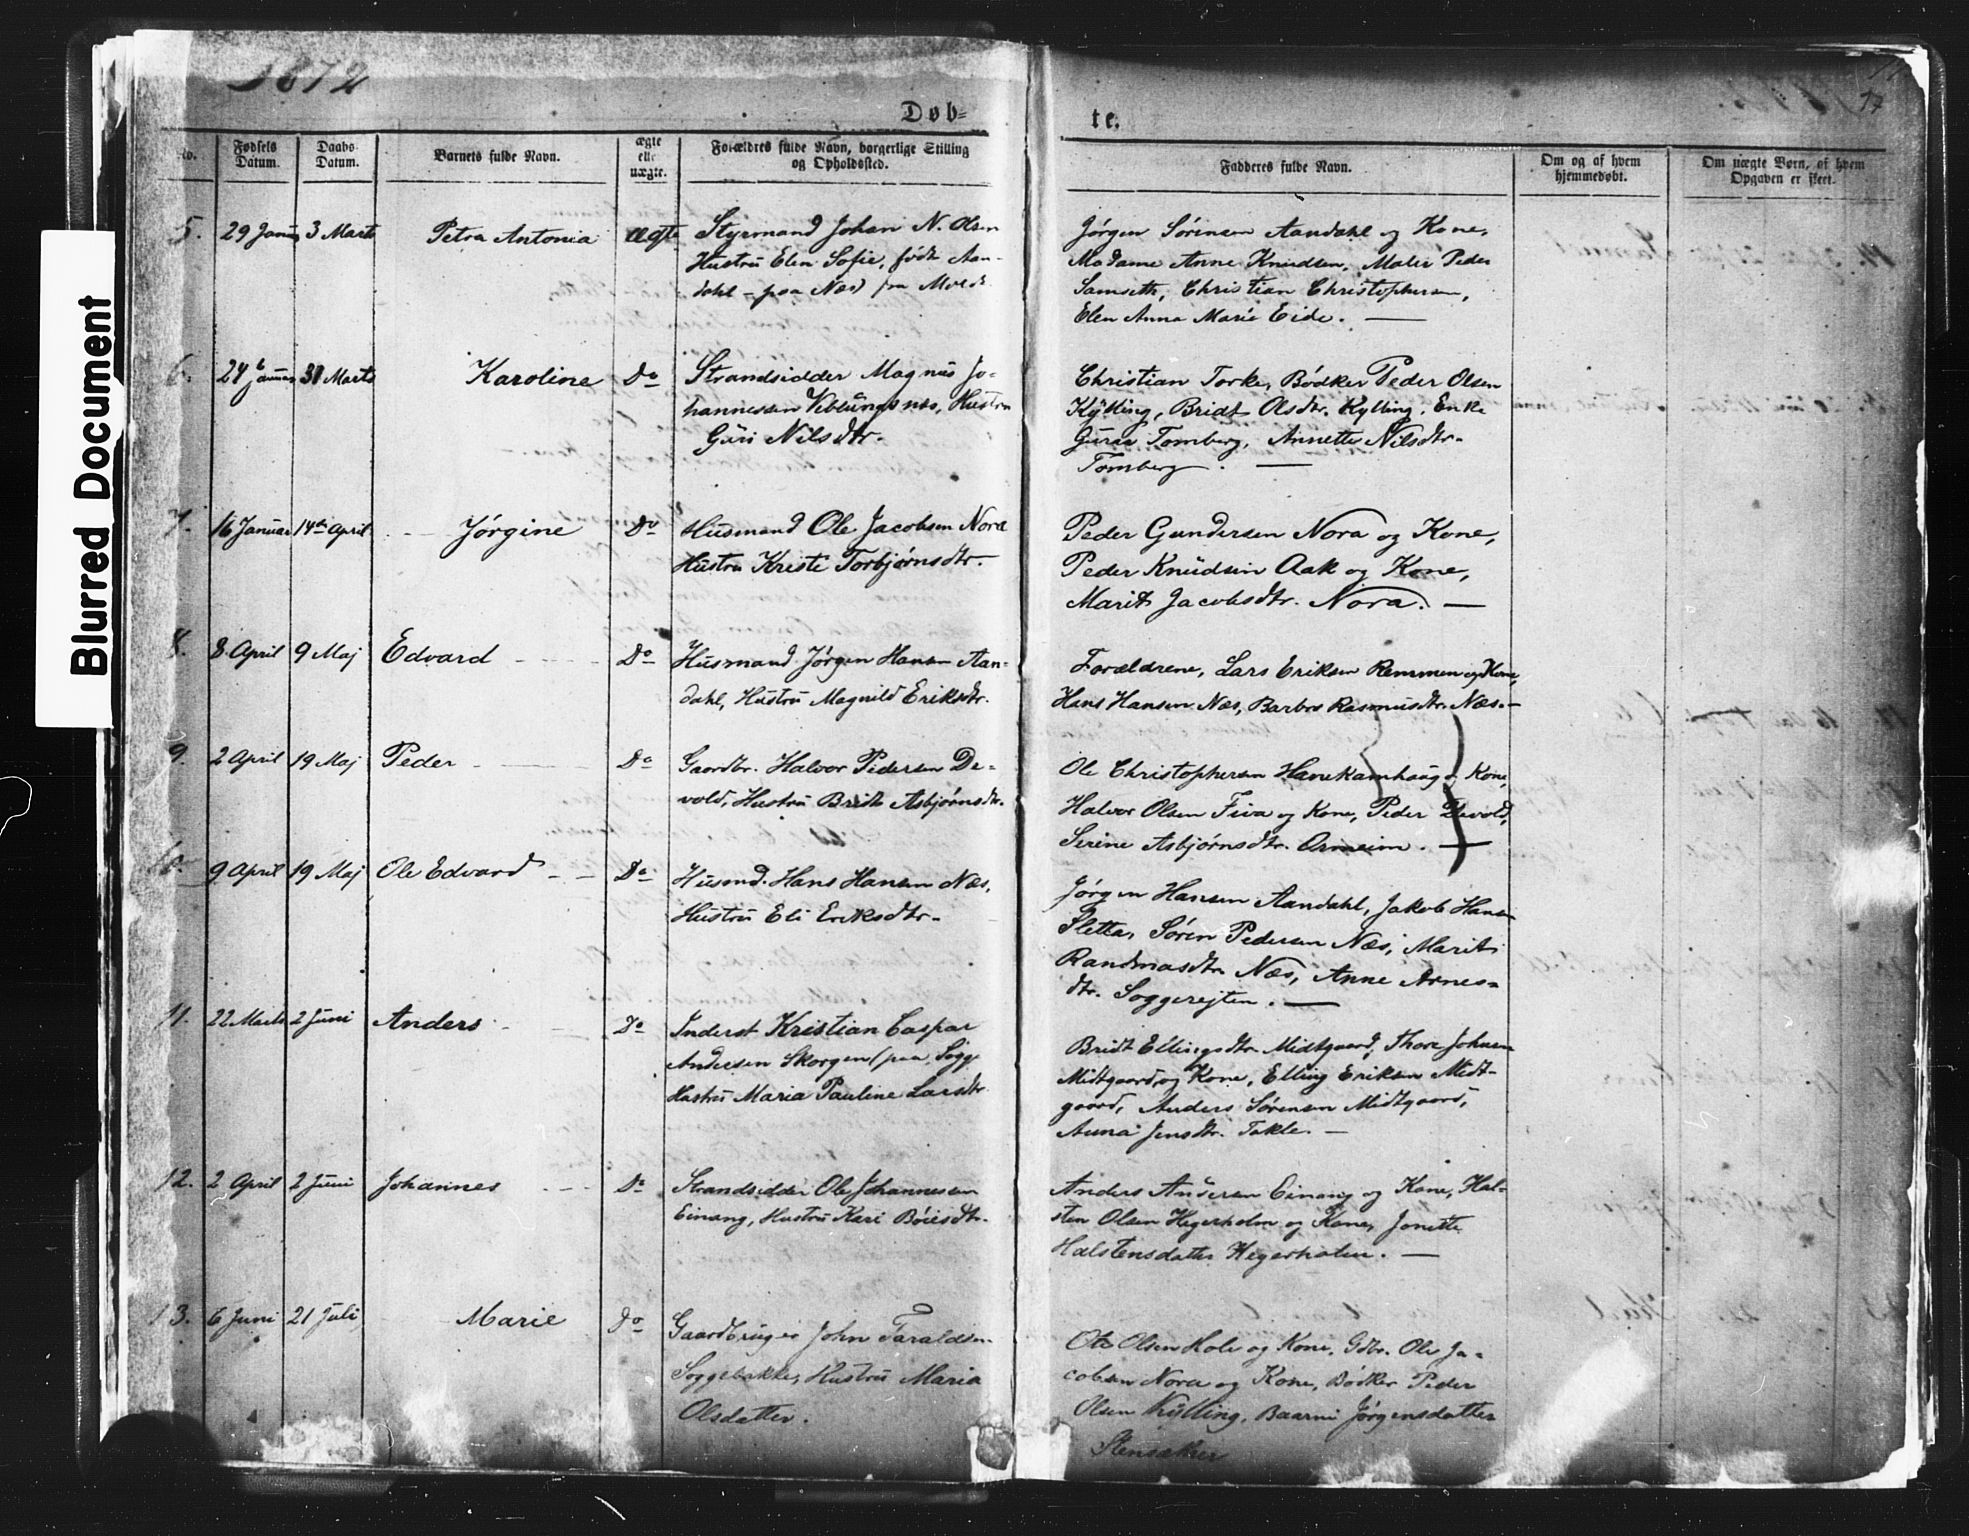 1872
17
Døb-
te.
No.
Fødsels Datum.
Daabs Datum.
Barnets fulde Navn.
ægte eller uægte.
Forældres fulde Navn, borgerlige Stilling og Opholdssted.
Fadderes fulde Navn.
Om og af hvem hjemmedøbt.
Om uægte Børn, af hvem Opgaven er skeet.
Blurred Document
5. 29 Januar 3 Marts Petra Antonia ægte Styrmand Johan N. Olsen
Hustru Elen Sofie, født Aan-
dahl - paa Næs fra Molde
Jørgen Sørensen Aandahl og Kone,
Madame Anne Knudsen, Maler Peder
Samseth, Christian Christophersen,
Elen Anna Marie Eide. —
6. 24 Januar 31 Marts Karoline Do Strandsidder Magnus Jo-
hannessen Veblungsnes, Hustru
Guri Nilsdtr.
Christian Torke, Bødker Peder Olsen
Kylling, Bridt Olsdtr. Kylling, Enke
Guru Tomberg, Annette Nilsdtr.
Tomberg. —
7. 16 Januar 14de April Jørgine Do Husmand Ole Jacobsen Nora
Hustru Kristi Torbjørnsdtr.
Peder Gundersen Nora og Kone,
Peder Knudsen Aak og Kone,
Marit Jacobsdtr. Nora. —
8. 8 April 9 Maj Edvard Do Husmand Jørgen Hansen Aan-
dahl, Hustru Magnild Eriksdtr.
Forældrene, Lars Eriksen Remmen og Kone,
Hans Hansen Næs, Barbro Rasmusdtr. Næs. —
9. 2 April 19 Maj Peder Do Gaardbr. Halvor Pedersen De-
vold, Hustru Bridt Asbjørnsdtr.
Ole Christophersen Hanekamhaug og Kone,
Halvor Olsen Fiva og Kone, Peder Devold,
Serine Asbjørnsdtr. Ormeim. —
10. 9 April 19 Maj Ole Edvard Do Husmd. Hans Hansen Næs,
Hustru Eli Eriksdtr.
Jørgen Hansen Aandahl, Jakob Hansen
Sletta, Søren Pedersen Næs, Marit
Randmasdtr. Næs, Anne Arnes-
dtr. Soggerejten. —
11. 22 Marts 2 Juni Anders Do Inderst Kristian Caspar
Andersen Skorgen (paa Sogge
Hustru Maria Pauline Larsdtr.
Bridt Ellingsdtr. Midtgaard, Thore Johnsen
Midtgaard og Kone, Elling Eriksen Midt-
gaard, Anders Sørensen Midtgaard,
Anna Jensdtr. Takle. —
12. 2 April 2 Juni Johannes Do Strandsidder Ole Johannesen
Einang, Hustru Kari Bøiesdtr.
Anders Andersen Einang og Kone, Hal-
sten Olsen Hegerholm og Kone, Jonette
Halstensdatter Hegerholm. —
13. 6 Juni 21 Juli Marie Do Gaardbruger John Taraldsen
Soggebakke, Hustru Maria
Olsdatter.
Ole Olsen Hole og Kone, Gdbr. Ole Ja-
cobsen Nora og Kone, Bødker Peder
Olsen Kylling, Baarni Jørgensdatter
Stensæther